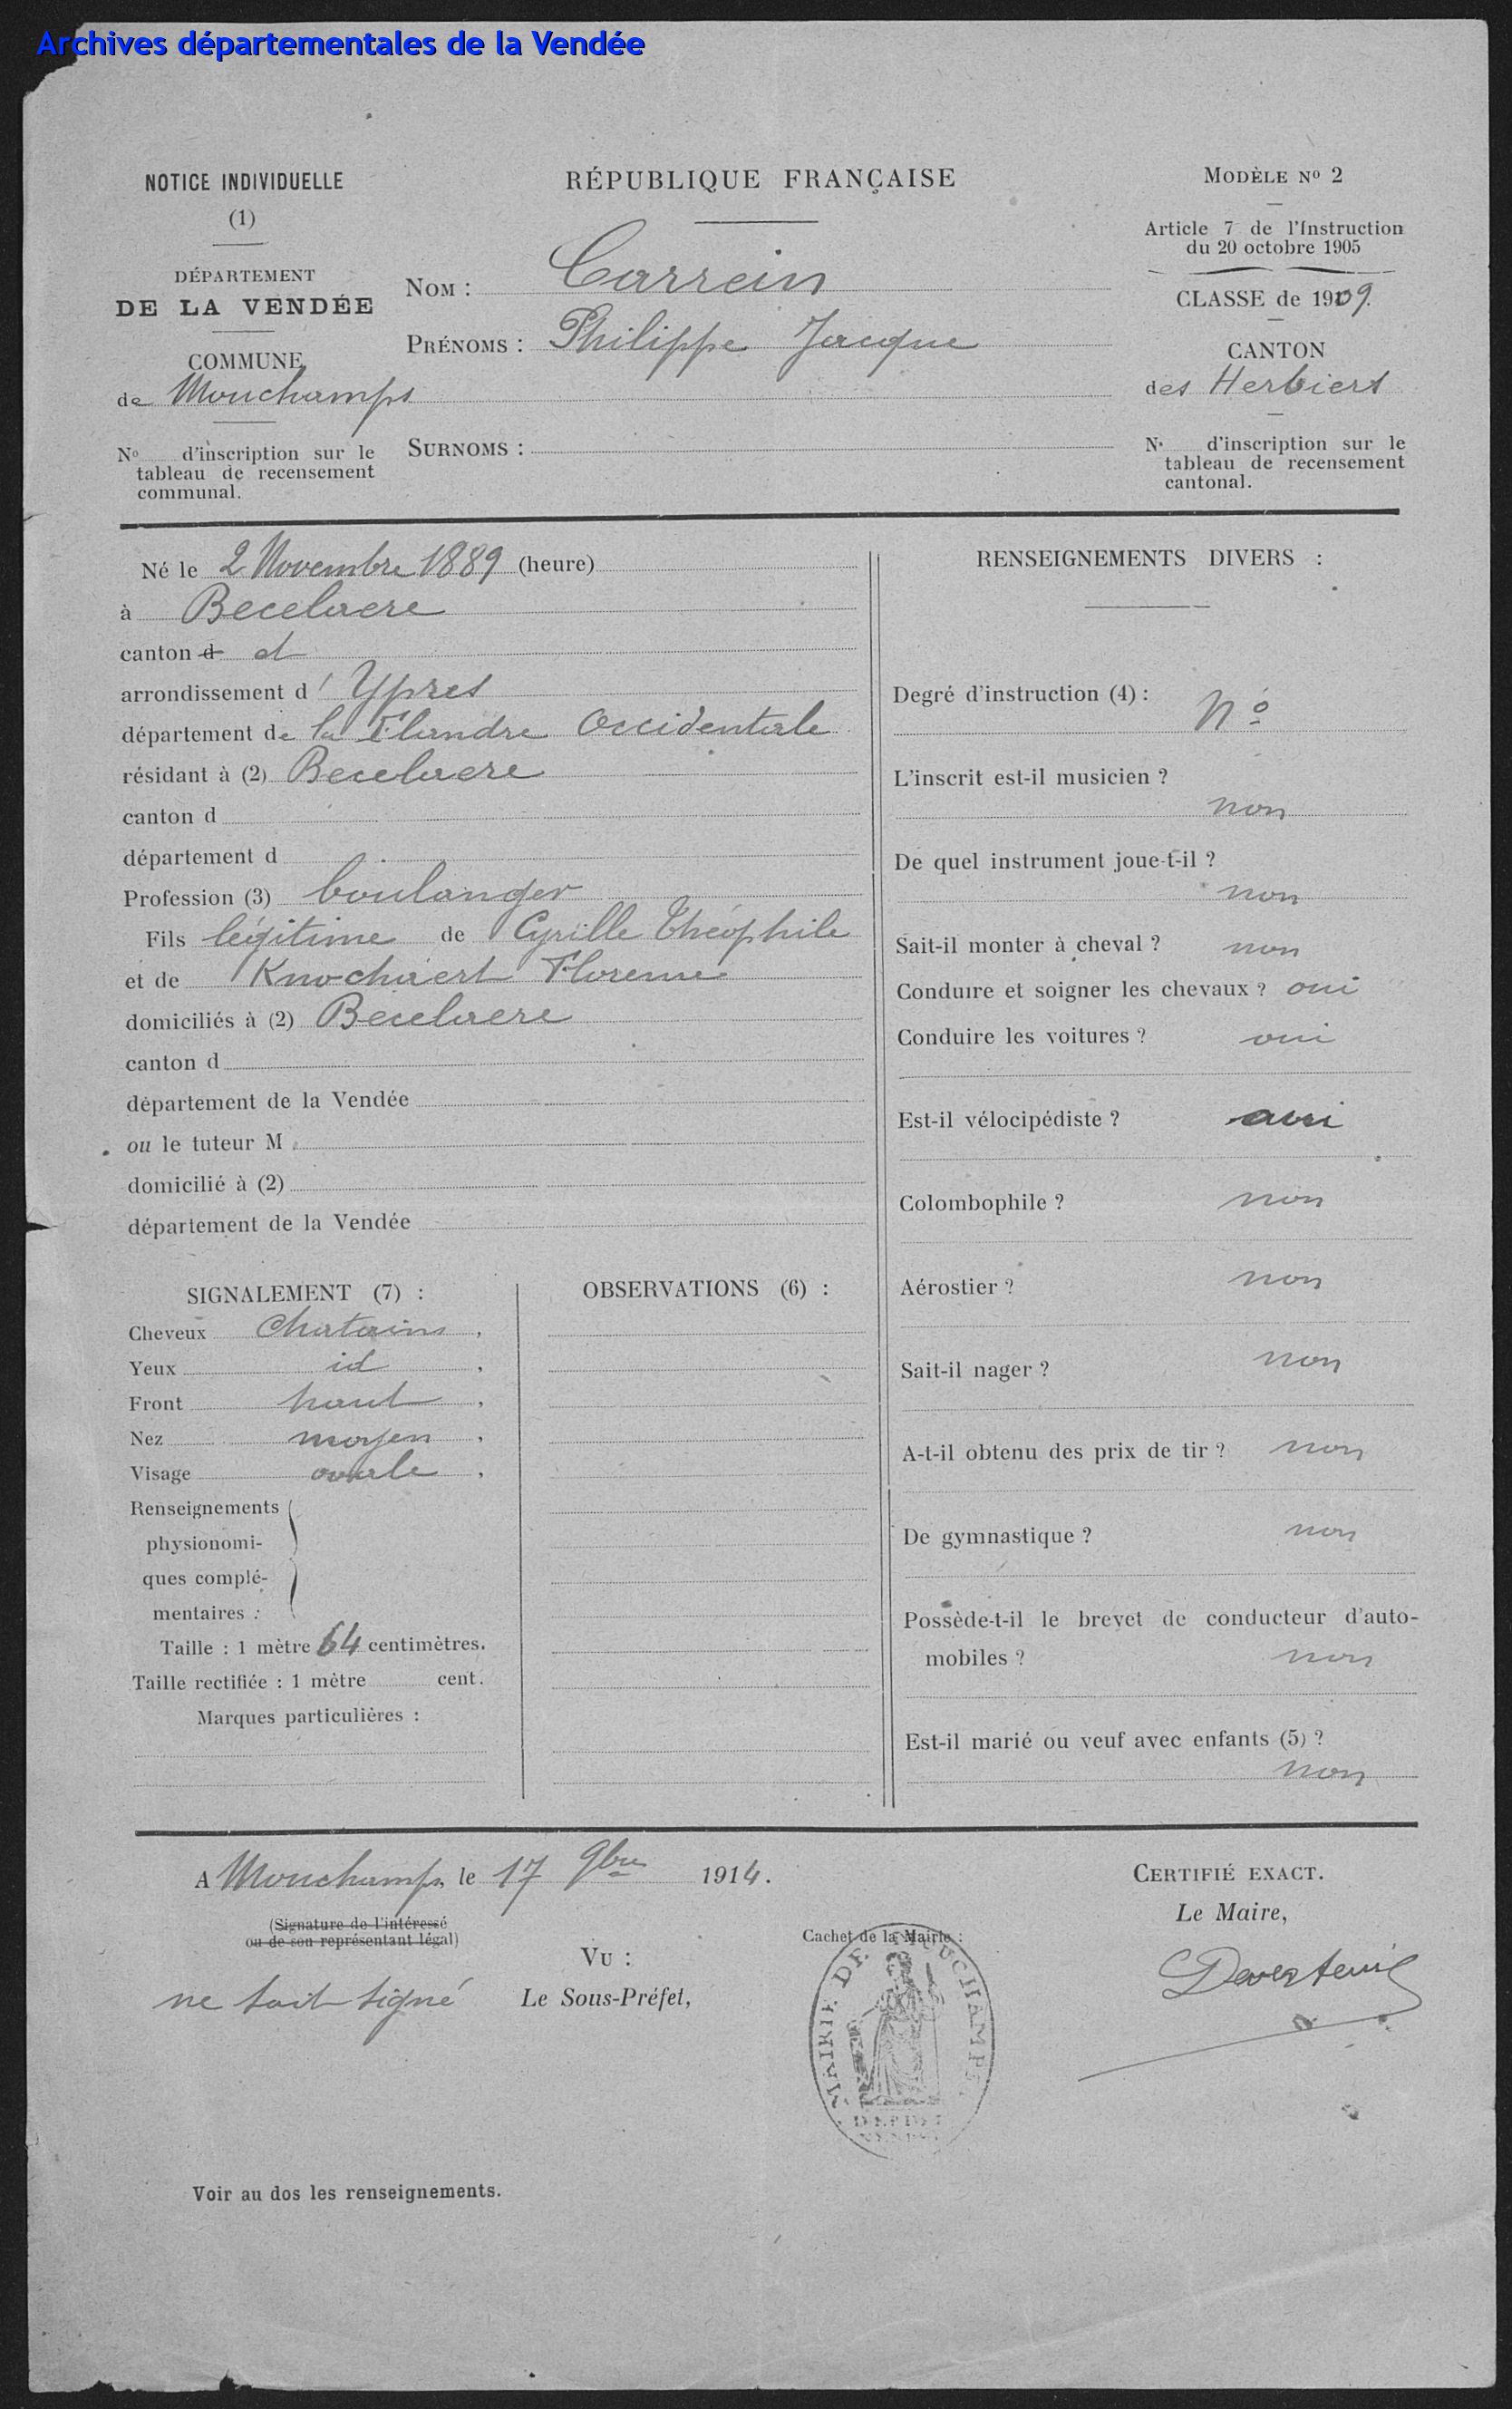 Archives départementales de la Vendée
NOTICE INDIVIDUELLE
(1)
DÉPARTEMENT
DE LA VENDÉE
COMMUNE
de Mouchamps
No d'inscription sur le
tableau de recensement
communal.
RÉPUBLIQUE FRANÇAISE
NOM : Carrein
PRÉNOMS : Philippe Jacque
SURNOMS :
MODÈLE No 2
Article 7 de l'Instruction
du 20 octobre 1905
CLASSE de 1909.
CANTON
des Herbiers
No d'inscription sur le
tableau de recensement
cantonal.
Né le 2 Novembre 1889 (heure)
à Becelaere
canton d d
arrondissement d' Ypres
département de la Flandre Occidentale
résidant à (2) Becelaere
canton d
département d
Profession (3) boulanger
Fils légitime de Cyrille Théophile
et de Knochaert Florence
domiciliés à (2) Becelaere
canton d
département de la Vendée
ou le tuteur M
domicilié à (2)
département de la Vendée
SIGNALEMENT (7) :
Cheveux Chatains ,
Yeux id ,
Front haut ,
Nez moyen ,
Visage ovale ,
Renseignements
physionomi-
ques complé-
mentaires :
Taille : 1 mètre 64 centimètres.
Taille rectifiée : 1 mètre cent.
Marques particulières :
OBSERVATIONS (6) :
RENSEIGNEMENTS DIVERS :
Degré d'instruction (4) : No
L'inscrit est-il musicien ?
non
De quel instrument joue-t-il ?
non
Sait-il monter à cheval ? non
Conduire et soigner les chevaux ? oui
Conduire les voitures ? oui
Est-il vélocipédiste ? oui
Colombophile ? non
Aérostier ? non
Sait-il nager ? non
A-t-il obtenu des prix de tir ? non
De gymnastique ? non
Possède-t-il le brevet de conducteur d'auto-
mobiles ? non
Est-il marié ou veuf avec enfants (5) ?
non
A Mouchamps, le 17 9bre 1914.
(Signature de l'intéressé
ou de son représentant légal)
ne sait signé
VU :
Le Sous-Préfet,
Cachet de la Mairie :
MAIRIE DE MOUCHAMPS
CERTIFIÉ EXACT.
Le Maire,
Voir au dos les renseignements.